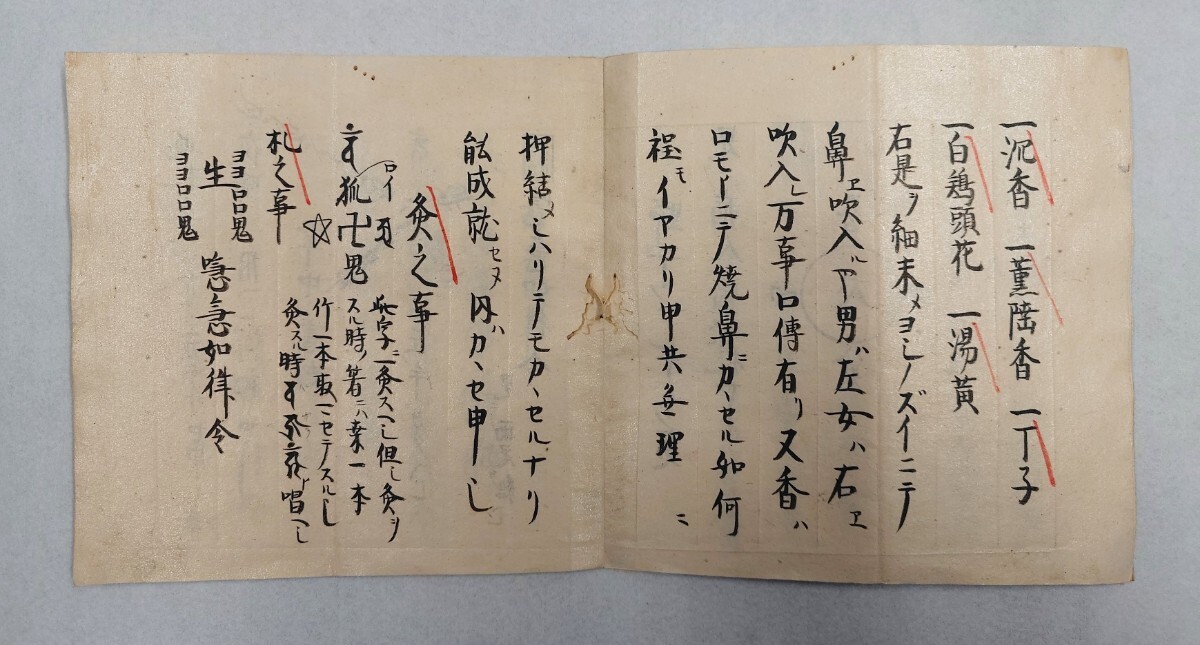 一泥香 一薫陸香 一丁子
一白鶏頭花 一湯黄
右是ヲ細末メヨシノズイニテ
鼻ヱ吹入ル下男ハ左女ハ右ヱ
吹入レ万事口傳有リ又香ハ
ロモーニテ焼鼻ニカヽセル如何
程モイヤカリ申共無理ニ
押結メシハリテモカヽセルナリ
能成就セヌ内ハカヽセ申ヘシ
灸之事
狐卍鬼
ロイ
此字ニ一灸スヘシ但シ灸ヲ
スル時ノ箸ニハ葉一本
竹一本取一ニセテスルヘシ
灸スル時 唱ヘシ
札之事 ☆
ヨヨロロ鬼
生 喼急如律令
ヨヨロロ鬼